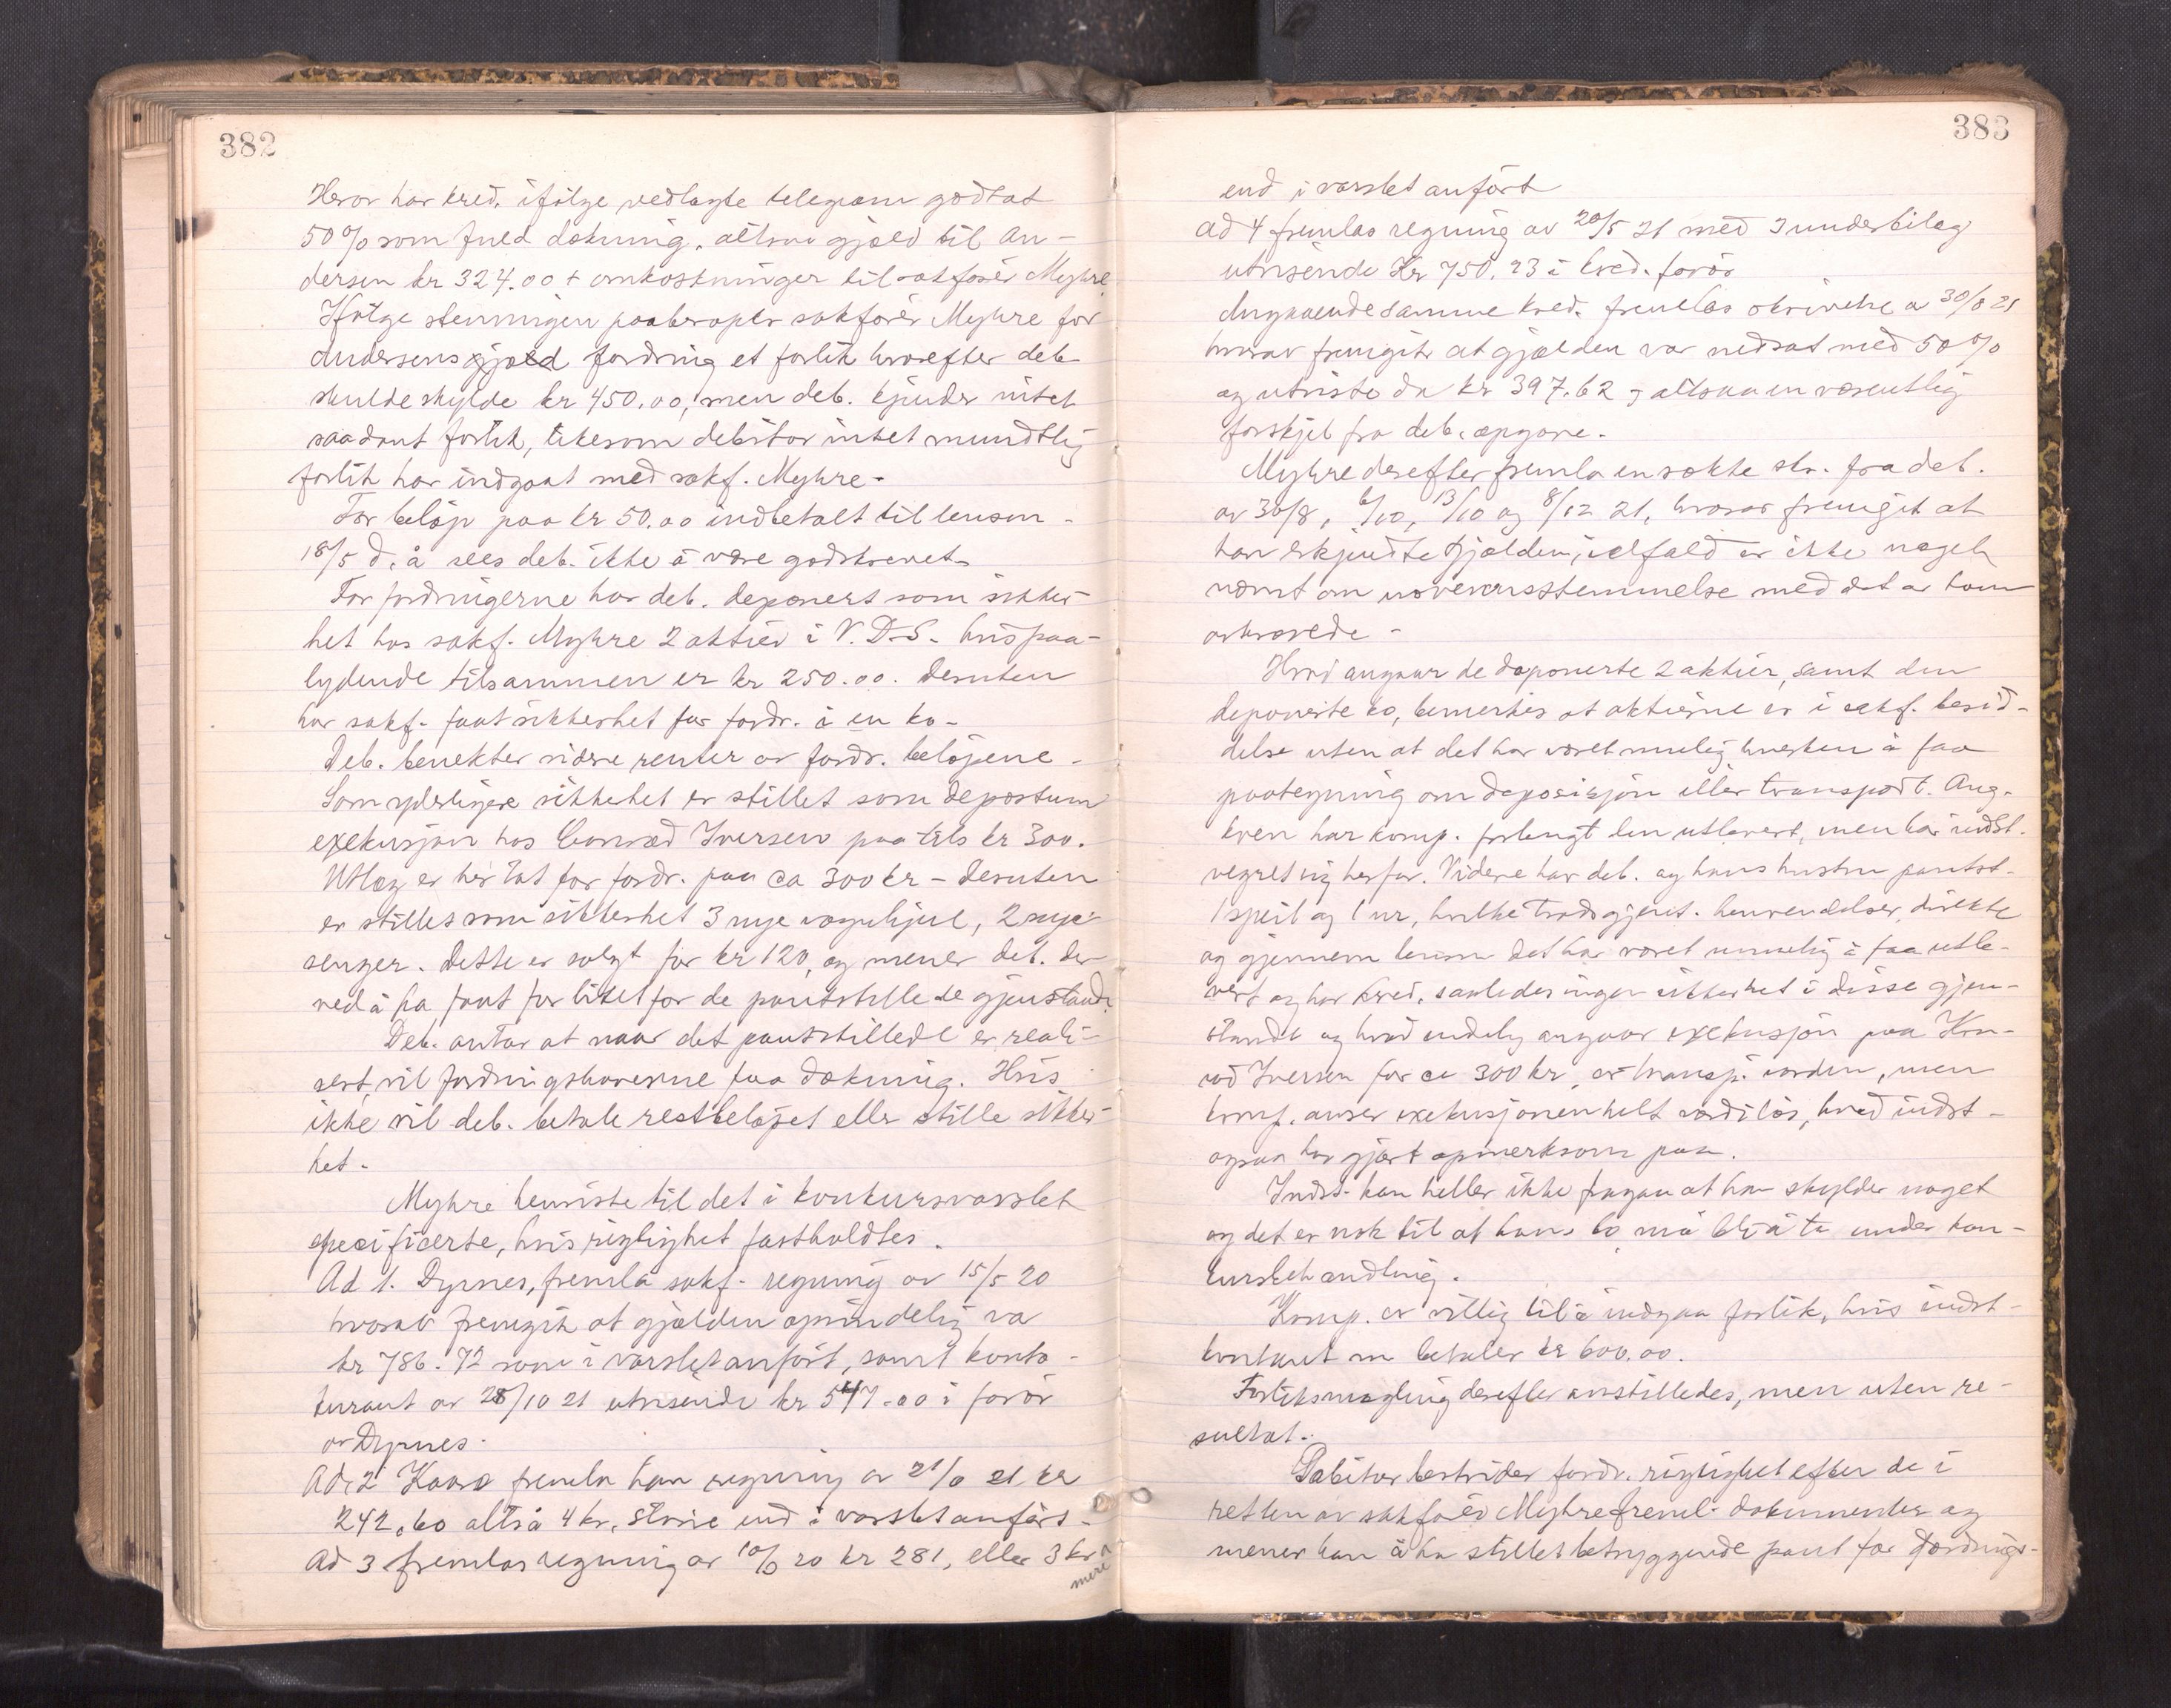 382
Herav har kred. ifølge vedlagte telegram godtat
50% som fuld dekning, altsaa gjæld til An-
dersen kr 324.00 + omkostninger til sakfører Myhre.
Ifølge stevningen paaberoper sakfører Myhre for
Andersens gjæld fordring et forlik hvorefter deb.
skulde skylde kr 450.00, men deb. kjender intet
saadant forlik, likesom debitor intet mundtlig
forlik har indgaat med sakf. Myhre.
For beløp paa kr 50.00 indbetalt til lensm.
18/5 d. å sees deb. ikke å være godskrevet.
For fordringerne har deb. deponert som sikker-
het hos sakf. Myhre 2 aktier i V.D.S. hvis paa-
lydende tilsammen er kr 250.00. Desuten
har sakf. faat sikkerhet for fordr. i en ko.
Deb. benekter videre renter av fordr. beløpene.
Som yderligere sikkerhet er stillet som depositum
exekusjon hos Conrad Iversen paa tils kr 300.
Utlæg er her tat for fordr. paa ca 300 kr – Desuten
er stillet som sikkerhet 3 nye vognhjul, 2 nye
senger. Dette er solgt for kr 120, og mener deb. der-
ved å ha faat for litet for de pantstillede gjenstande.
Deb. antar at naar det pantstillede er reali-
sert, vil fordringshaverne faa dekning. Hvis
ikke vil deb. betale restbeløpet eller stille sikker-
het.
Myhre henviste til det i konkursvarslet
specificerte, hvis rigtighet fastholdtes.
Ad 1. Dyrnes, fremla sakf. regning av 15/5 20
hvorav fremgik at gjælden oprindelig va
kr 786.72 som i varslet anført, samt konto-
kurant av 28/10 21 utvisende kr 547.00 i favør
av Dyrnes.
Ad. 2 fremla han regning av 21/8 21 kr
242.60 altså 4 kr. større end i varslet anført.
Ad 3 fremlas regning av 10/6 20 kr 281, eller 3 kr
mere
383
end i varslet anført
Ad 4 fremlas regning av 20/5 21 med 3 underbilag
utvisende Kr 750.23 i kred. favør
Angaaende samme kred. fremlas skrivelse av 30/8 21
hvorav fremgik at gjælden var nedsat med 50%
og utviste da kr 397.62 – altsaa en væsentlig
forskjel fra deb. opgave.
Myhre derefter fremla en række skr. fra deb.
av 30/8, 6/10, 13/10 og 8/12 21, hvorav fremgik at
han erkjendte gjælden, ialfald er ikke noget
nævnt om uoverensstemmelse med det av ham
avkrævede.
Hvad angaar de deponerte 2 aktier, samt den
deponerte ko, bemerkes at aktierne er i sakf. besid-
delse uten at det har været mulig hverken å faa
paategning om deposisjon eller transport. Ang.
kven har komp. forlangt den utlevert, men har indst.
vegret sig herfor. Videre har deb. og hans hustru pantst.
1 speil og 1 ur, hvilke trods gjent. henvendelser, direkte
og gjennem lensm det har været umulig å faa utle-
vert og har kred. saaledes ingen sikkerhet i disse gjen-
stande og hvad endelig angaar exekusjon paa Kon-
rad Iversen for ca 300 kr, er transp. i orden, men
komp. anser exekusjonen helt værdiløs, hvad indst.
ogsaa har gjort opmerksom paa.
Indst. kan heller ikke fragaa at han skylder noget
og det er nok til at hans bo må bli å ta under kon-
kursbehandling.
Komp. er villig til å indgaa forlik, hvis indst.
kontant nu betaler kr 600.00.
Forliksmægling derefter anstilledes, men uten re-
sultat.
Debitor bestrider fordr. rigtighet efter de i
retten av sakfører Myhre freml. dokumenter og
mener han å ha stillet betryggende pant for fordrings-